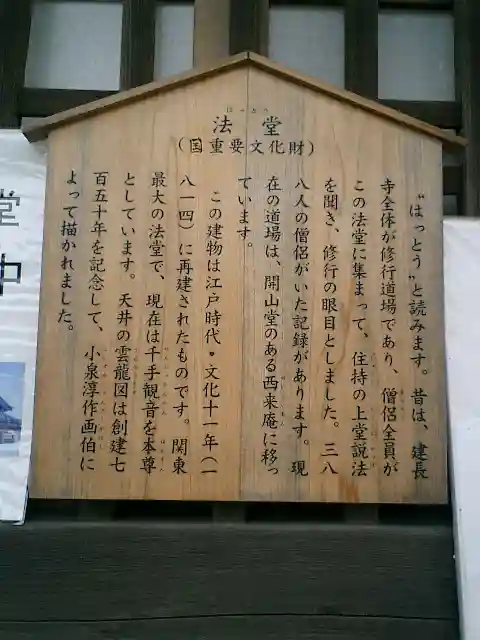 はっとう
法堂
（国重要文化財）
"はっとう"と読みます。昔は、建長
寺全体が修行道場であり、僧侶全員が
この法堂に集まって、住持の上堂説法
を聞き、修行の眼目としました。三八
八人の僧侶がいた記録があります。現
在の道場は、開山堂のある西来庵に移っ
ています。
この建物は江戸時代・文化十一年（一
八一四）に再建されたものです。関東
最大の法堂で、現在は千手観音を本尊
としています。天井の雲龍図は創建七
百五十年を記念して、小泉淳作画伯に
よって描かれました。
堂
中